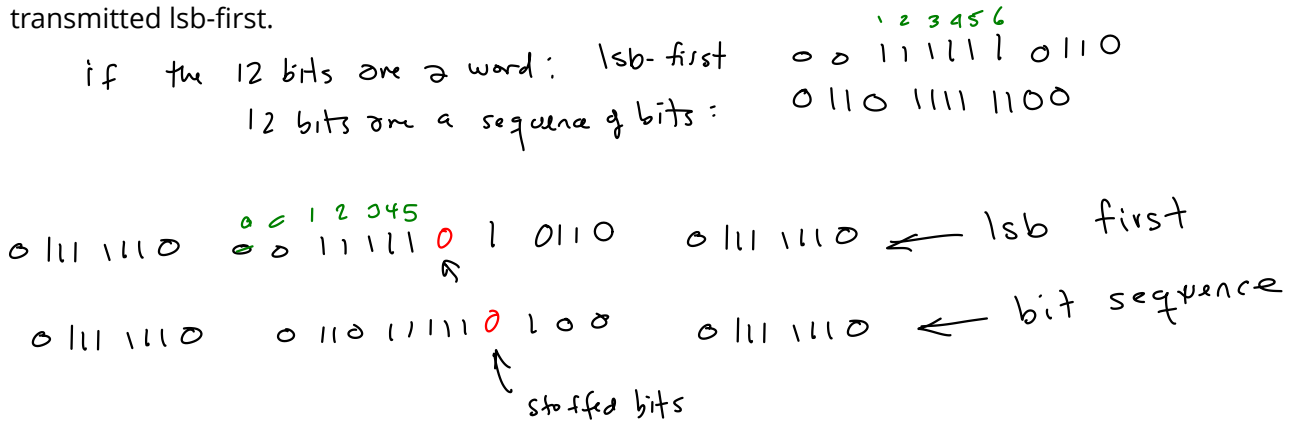 transmitted lsb-first.
1 2 3 4 5 6
if the 12 bits are a word: lsb-first 0 0 1 1 1 1 1 1 0 1 1 0
12 bits are a sequence of bits: 0 110 1111 1100
0 0 1 2 3 4 5
0 111 1110 0 0 1 1 1 1 1 0 1 0110 0 111 1110 ← lsb first
0 111 1110 0 110 1 1 1 1 1 0 1 0 0 0 111 1110 ← bit sequence
stuffed bits